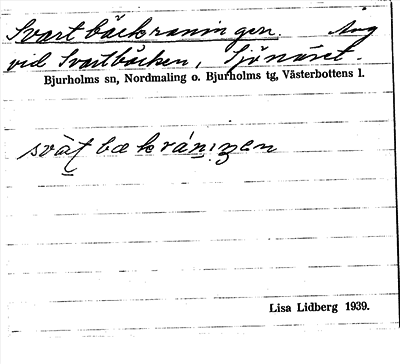 Svartbäckraningen. Äng
vid Svartbäcken, Sjönäset.
Bjurholms sn, Nordmaling o. Bjurholms tg, Västerbottens l.
Lisa Lidberg 1939.